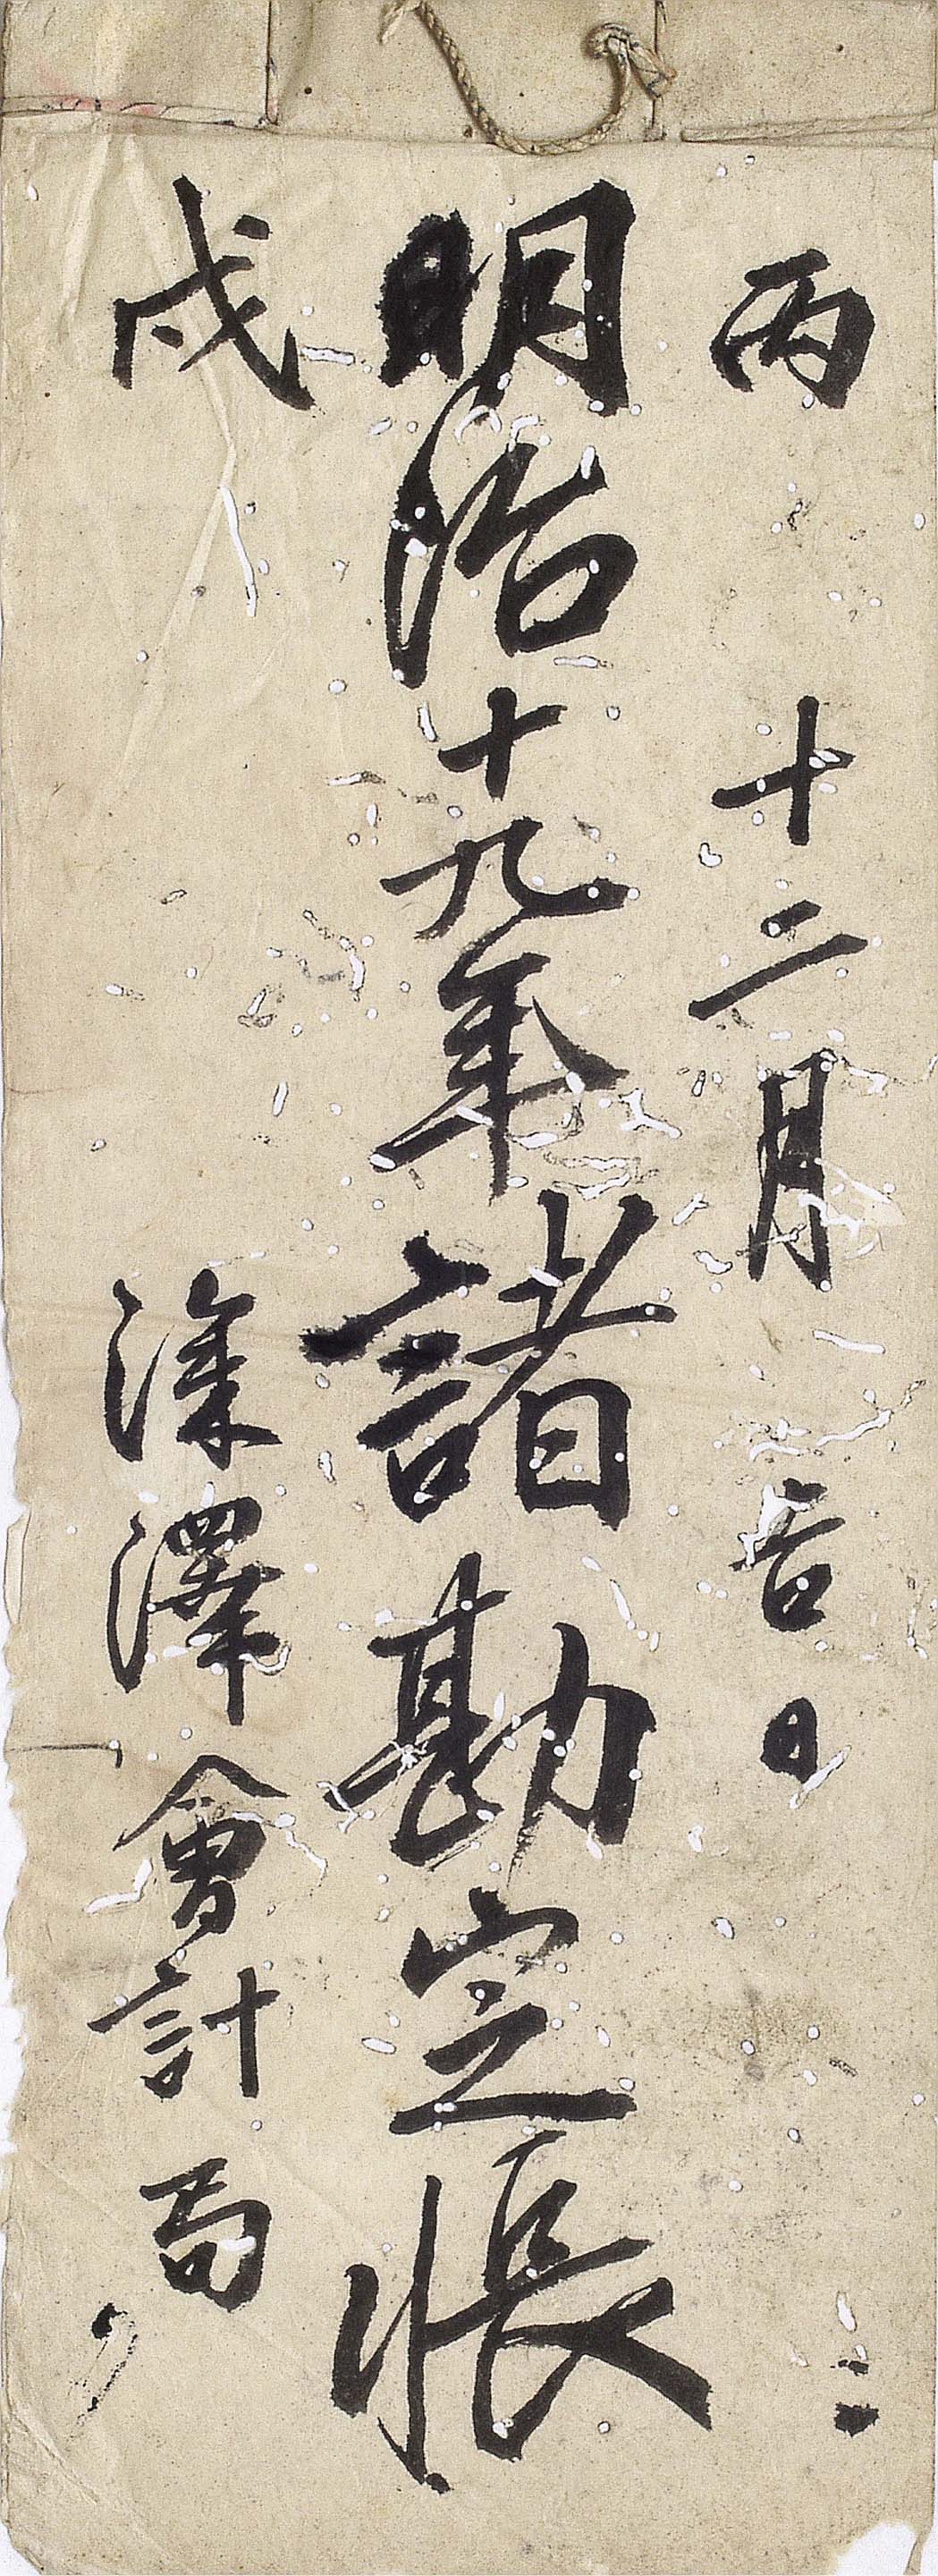 丙 十二月 吉日
明治十九年諸勘定帳
戌 深澤會計局